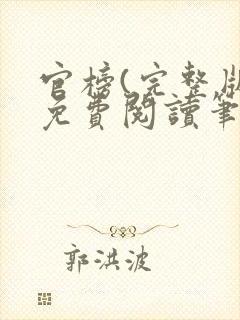 官榜(完整版
免費閱讀筆
郭洪波